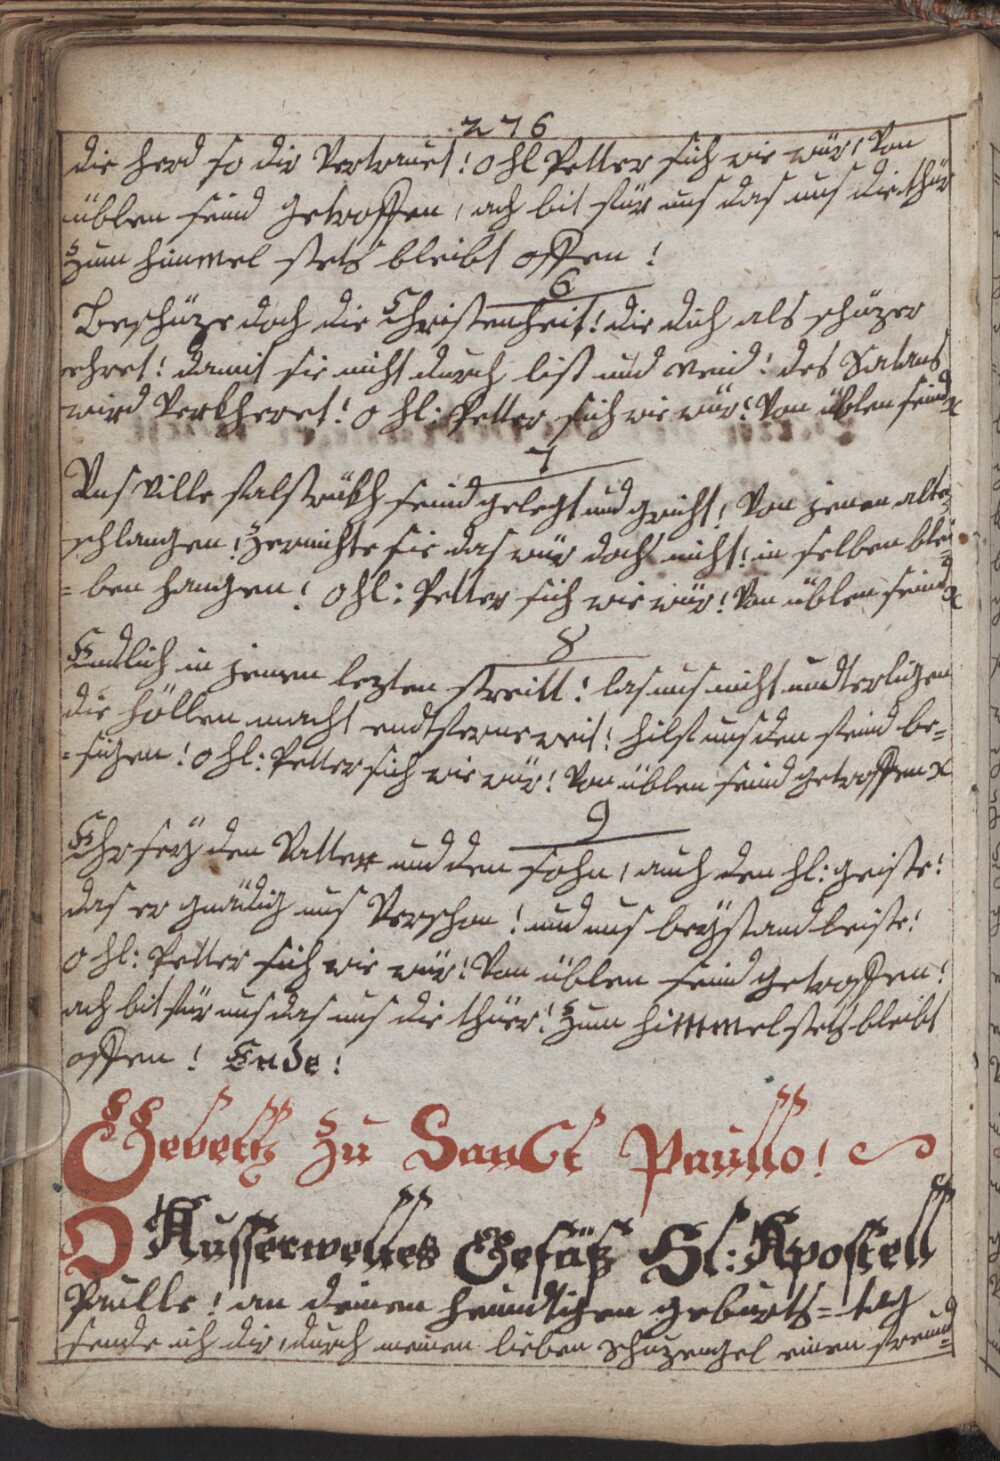 276
die herd so dir Vertrauet! O hl Petter sich wie wür! Von
üblen feind getroffen, ach bit für uns das uns die thür
zum himmel stets bleibt offen!
6
Beschüze doch die Christenheit! die dich als schüzer
ehret! damit sie nicht durch list und neid! des Satans
wird Verkheret! O hl: Petter sich wie wür! Von üblen feind x
7
Uns Ville falstrükh feind gelegt und gricht! Von jenen alten
schlangen! Zernichte sie das wür doch nicht! in selben blei
= ben hangen! O hl: Petter sich wie wür! Von üblen feind x
8
Endlich in jenem lezten streitt! las uns nicht undterligen
die höllen macht endtferne weit! hilf uns den feind be=
= sigen! O hl: Petter sich wie wür! Von üblen feind getroffen x
9
Ehr sey den Vatter und den sohn, auch den hl: geiste!
das er gnädig uns Verschon! und uns beystand leiste!
O hl: Petter sich wie wür! Von üblen feind getroffen!
ach bit für uns das uns die thüer! zum himmel stets bleibt
offen! Ende!
Gebett zu Sanct Paullo!
O Ausserweltes Gefäß Hl: Apostell
Paulle! an deinem heundtigen geburts= tag
sende ich dir, durch meinen lieben schuzengel einen freund=